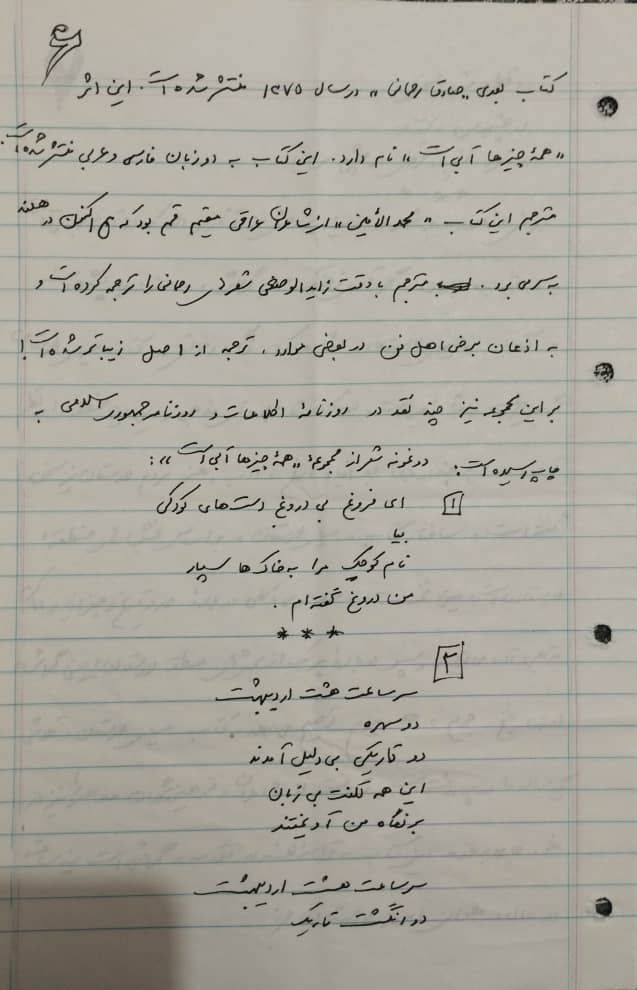 کتاب بعدی «صادق رحمانی» در سال ۱۳۷۵ منتشر شده است. این اثر
«همهٔ چیزها آبی است» نام دارد. این کتاب به دو زبان فارسی و عربی منتشر شده است.
مترجم این کتاب «محمد الأمین» از شاعران عراقی مقیم قم بود که هم اکنون در هلند
به سر می برد. مترجم با دقت زاید الوصفی شعرهای رحمانی را ترجمه کرده است و
به اذعان برخی اهل فن در بعضی موارد، ترجمه از اصل زیباتر شده است!
بر این مجموعه نیز چند نقد در روزنامهٔ اطلاعات و روزنامه جمهوری اسلامی به
چاپ رسیده است. دو نمونه شعر از مجموعهٔ «همهٔ چیزها آبی است»:
۱ ای فروغ بی دروغ دست‌های کودکی
بیا
نام کوچک مرا به خاک‌ها سپار
من دروغ گفته‌ام.
* * *
۲
سر ساعت هشت اردیبهشت
دو سهره
دو تاریکی بی دلیل آمدند
این همه لکنت بی زبان
بر نگاه من آویختند
سر ساعت هشت اردیبهشت
دو انگشت تاریک